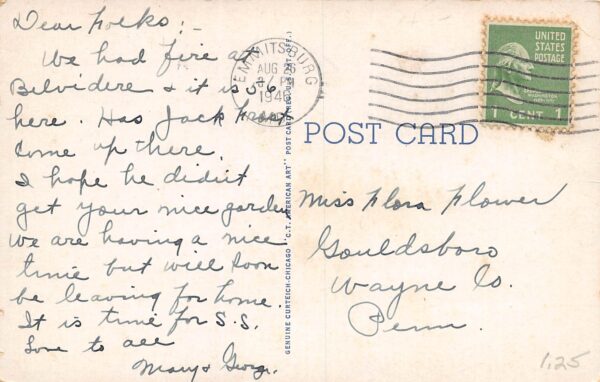 Dear Folks:-
We had fire at
Belvidere & it is 56
here. Has Jack Frost
come up there.
I hope he didn't
get your nice garden
We are having a nice
time but will soon
be leaving for home.
It is time for S.S.
Love to all
Mary & George.
EMMITSBURG
AUG
1940
GENUINE CURTEICH-CHICAGO "C.T. AMERICAN ART" POST CARD (REG. U.S. PAT. OFF.)
POST CARD
UNITED
STATES
POSTAGE
1 CENT 1
Miss Flora Flower
Gouldsboro
Wayne Co.
Penn.
1.25